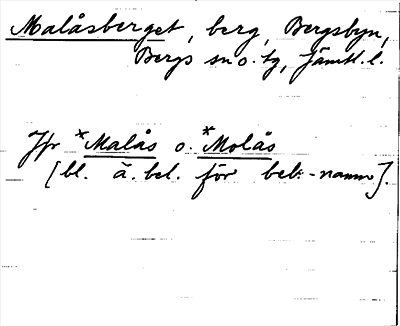 Malåsberget, berg, Bergsbyn,
Bergs sn o. tg, Jämtl. l.
Jfr *Malås o. *Molås
[bl. ä. bel. för beb.-namn].